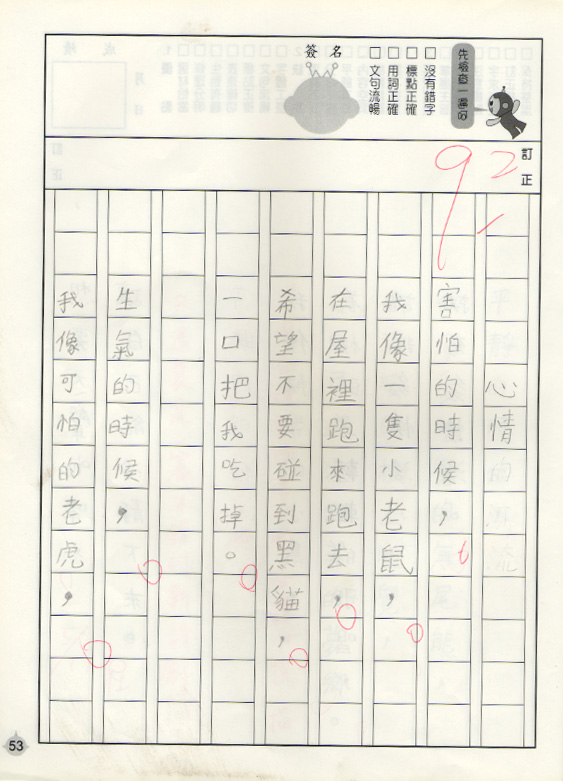 先檢查一遍吧
□沒有錯字
□標點正確
□用詞正確
□文句流暢
簽名
訂正
92
心情
害怕的時候，
我像一隻小老鼠，
在屋裡跑來跑去，
希望不要碰到黑貓，
一口把我吃掉。
生氣的時候，
我像可怕的老虎，
53